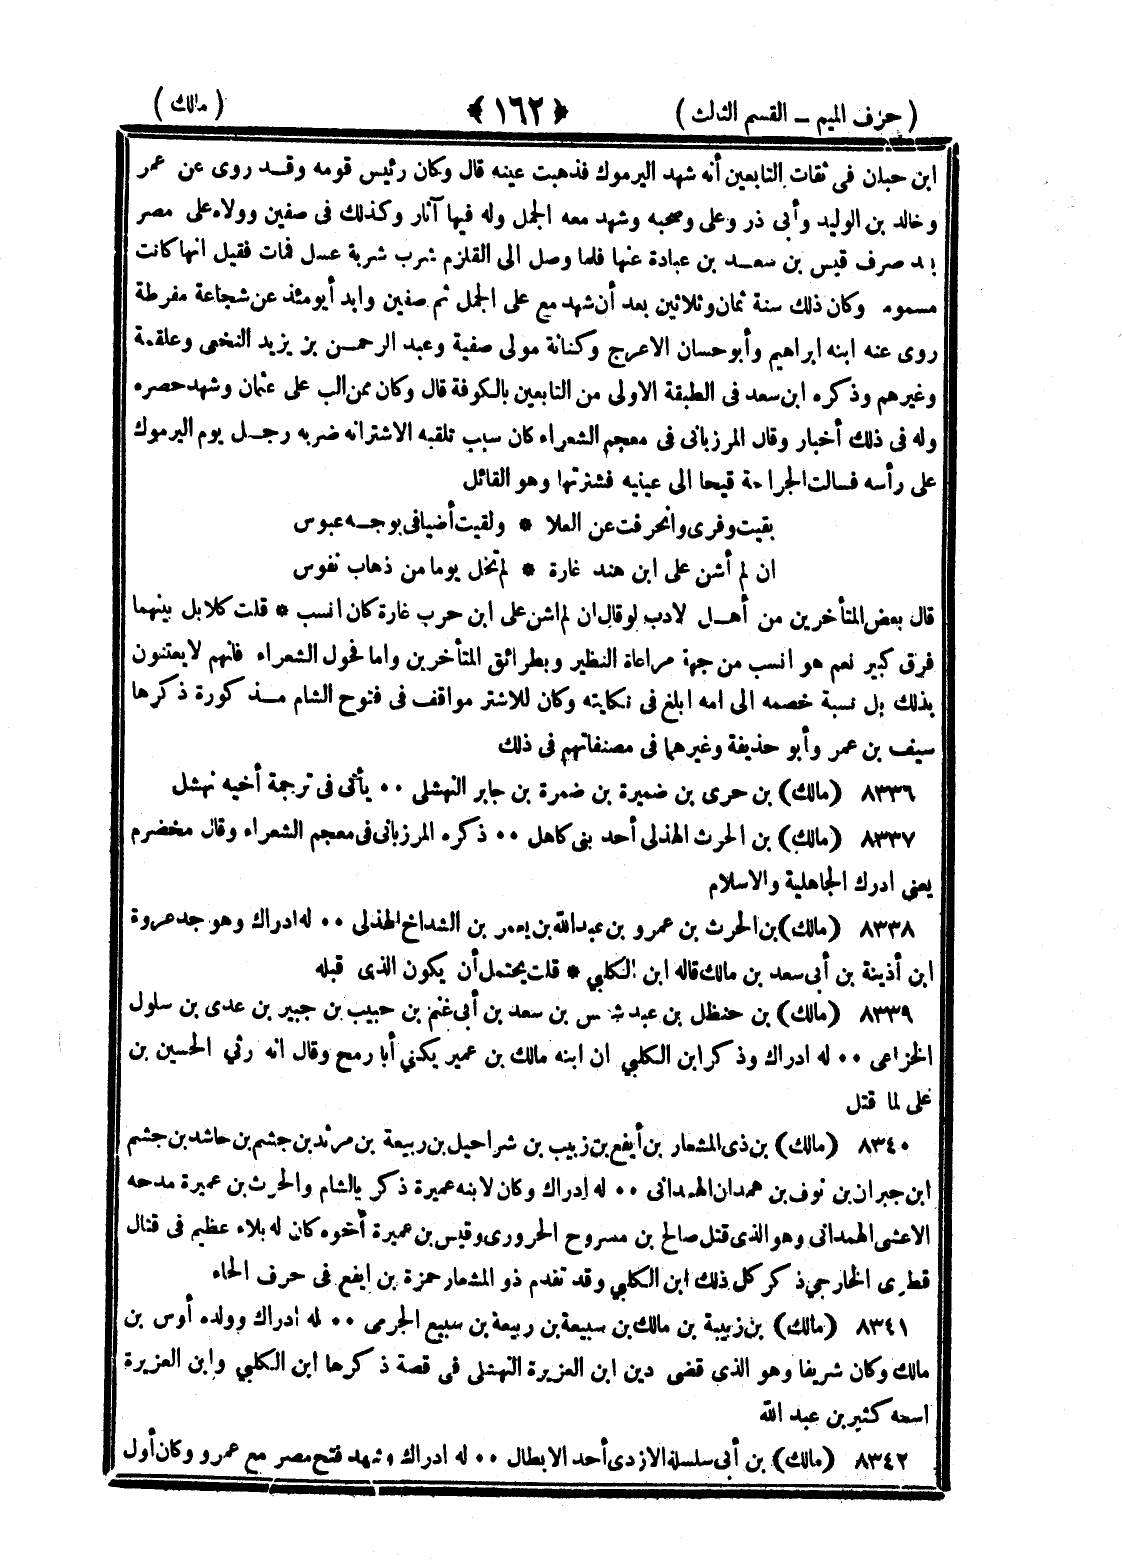 ( حرف الميم – القسم الثالث ) ﴿ ١٦٢ ﴾ ( مالك )
ابن حبان فى ثقات التابعين أنه شهد اليرموك فذهبت عينه قال وكان رئيس قومه وقد روى عن عمر
وخالد بن الوليد وأبى ذر وعلى وصحبه وشهد معه الجمل وله فيها آثار وكذلك فى صفين وولاه على مصر
بعد صرف قيس بن سعد بن عبادة عنها فلما وصل الى القلزم شرب شربة عسل فمات فقيل انها كانت
مسمومه وكان ذلك سنة ثمان وثلاثين بعد أن شهد مع على الجمل ثم صفين وابد أيومئذ عن شجاعة مفرطة
روى عنه ابنه ابراهيم وأبو حسان الاعرج وكنانة مولى صفية وعبد الرحمن بن يزيد النخعى وعلقمة
وغيرهم وذكره ابن سعد فى الطبقة الاولى من التابعين بالكوفة قال وكان ممن الب على عثمان وشهد حصره
وله فى ذلك أخبار وقال المرزبانى فى معجم الشعراء كان سبب تلقبه الاشترانه ضربه رجل يوم اليرموك
على رأسه فسالت الجراحة قيحا الى عينيه فشترتها وهو القائل
بقيت وفرى وانحرفت عن العلا * ولقيت أضيافى بوجه عبوس
ان لم أشن على ابن هند غارة * لم تخل يوما من ذهاب نفوس
قال بعض المتأخرين من أهل لادب لو قال ان لم اشن على ابن حرب غارة كان انسب * قلت كلا بل بينهما
فرق كبير نعم هو انسب من جهة مراعاة النظير وبطرائق المتأخرين واما فحول الشعراء فانهم لا يعتنون
بذلك بل نسبة خصمه الى امه ابلغ فى نكايته وكان للاشتر مواقف فى فتوح الشام مذكورة ذكرها
سيف بن عمر وأبو حذيفة وغيرهما فى مصنفاتهم فى ذلك
٨٣٣٦ (مالك) بن حرى بن ضميرة بن ضمرة بن جابر النهشلى ٠٠ يأتى فى ترجمة أخيه نهشل
٨٣٣٧ (مالك) بن الحرث الهذلى أحد بنى كاهل ٠٠ ذكره المرزبانى فى معجم الشعراء وقال مخضرم
يعني ادرك الجاهلية والاسلام
٨٣٣٨ (مالك) بن الحرث بن عمرو بن عبد الله بن يعمر بن الشداخ الهذلى ٠٠ له ادراك وهو جد عروة
ابن أذينة بن أبى سعد بن مالك قاله ابن الكلبي * قلت يحتمل أن يكون الذى قبله
٨٣٣٩ (مالك) بن حنظل بن عبد شمس بن سعد بن أبى غنم بن حبيب بن جبير بن عدى بن سلول
الخزاعى ٠٠ له ادراك وذكر ابن الكلبي ان ابنه مالك بن عمير يكني أبا رمح وقال انه رثي الحسين بن
على لما قتل
٨٣٤٠ (مالك) بن ذى المشعار بن أيفع بن زبيب بن شراحيل بن ربيعة بن مرثد بن جشم بن حاشد بن جشم
ابن جبران بن نوف بن همدان الهمدانى ٠٠ له إدراك وكان لابنه عميرة ذكر بالشام والحرث بن عميرة مدحه
الاعشى الهمدانى وهو الذى قتل صالح بن مسروح الحرورى وقيس بن عميرة أخوه كان له بلاء عظيم فى قتال
قطرى الخارجي ذكر كل ذلك ابن الكلبي وقد تقدم ذو المشعار حمزة بن ايفع فى حرف الحاء
٨٣٤١ (مالك) بن زبيبة بن مالك بن سبيعة بن ربيعة بن سبيع الجرمى ٠٠ له ادراك وولده أوس بن
مالك وكان شريفا وهو الذى قضى دين ابن العزيرة النهشلى فى قصة ذكرها ابن الكلبي وابن العزيرة
اسمه كثير بن عبد الله
٨٣٤٢ (مالك) بن أبى سلسلة الازدى أحد الابطال ٠٠ له ادراك وشهد فتح مصر مع عمرو وكان أول